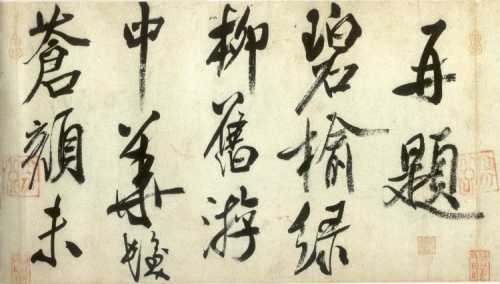 再題
碧榆緑
柳舊游
中華髮
蒼顔未